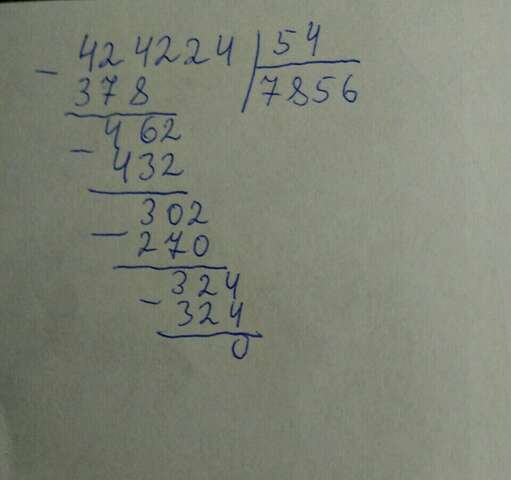 - 424224 | 54
378 | 7856
- 462
432
- 302
270
- 324
324
0